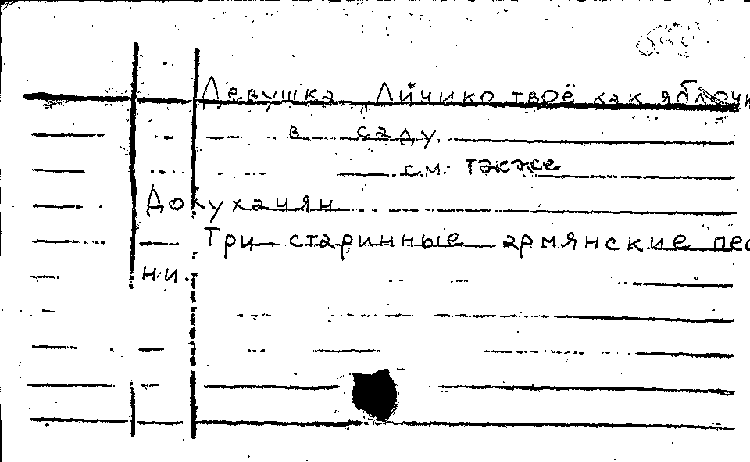 Девушка. Личико твоё как яблочк
в саду.
см. также
Докуханян
Три старинные армянские пес
ни.